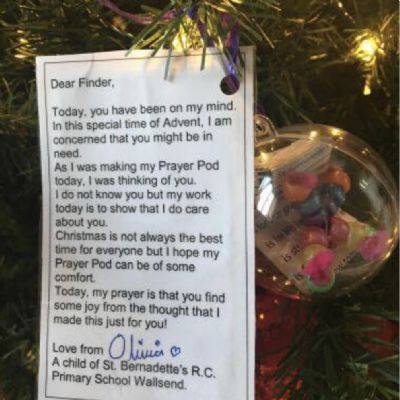 Dear Finder,
Today, you have been on my mind.
In this special time of Advent, I am
concerned that you might be in
need.
As I was making my Prayer Pod
today, I was thinking of you.
I do not know you but my work
today is to show that I do care
about you.
Christmas is not always the best
time for everyone but I hope my
Prayer Pod can be of some
comfort.
Today, my prayer is that you find
some joy from the thought that I
made this just for you!
Love from Olivia
A child of St. Bernadette's R.C.
Primary School Wallsend.